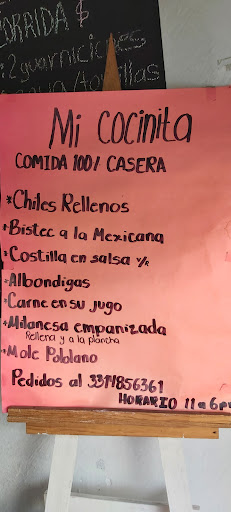 ORRIDA $
2 guarniciones
agua tortillas
Mi cocinita
COMIDA 100/ CASERA
*Chiles Rellenos
*Bistec a la Mexicana
*Costilla en salsa v/r
*Albondigas
*Carne en su jugo
*Milanesa empanizada
Rellena y a la plancha
*Mole Poblano
Pedidos al 3314856361
HORARIO 11 a 6p